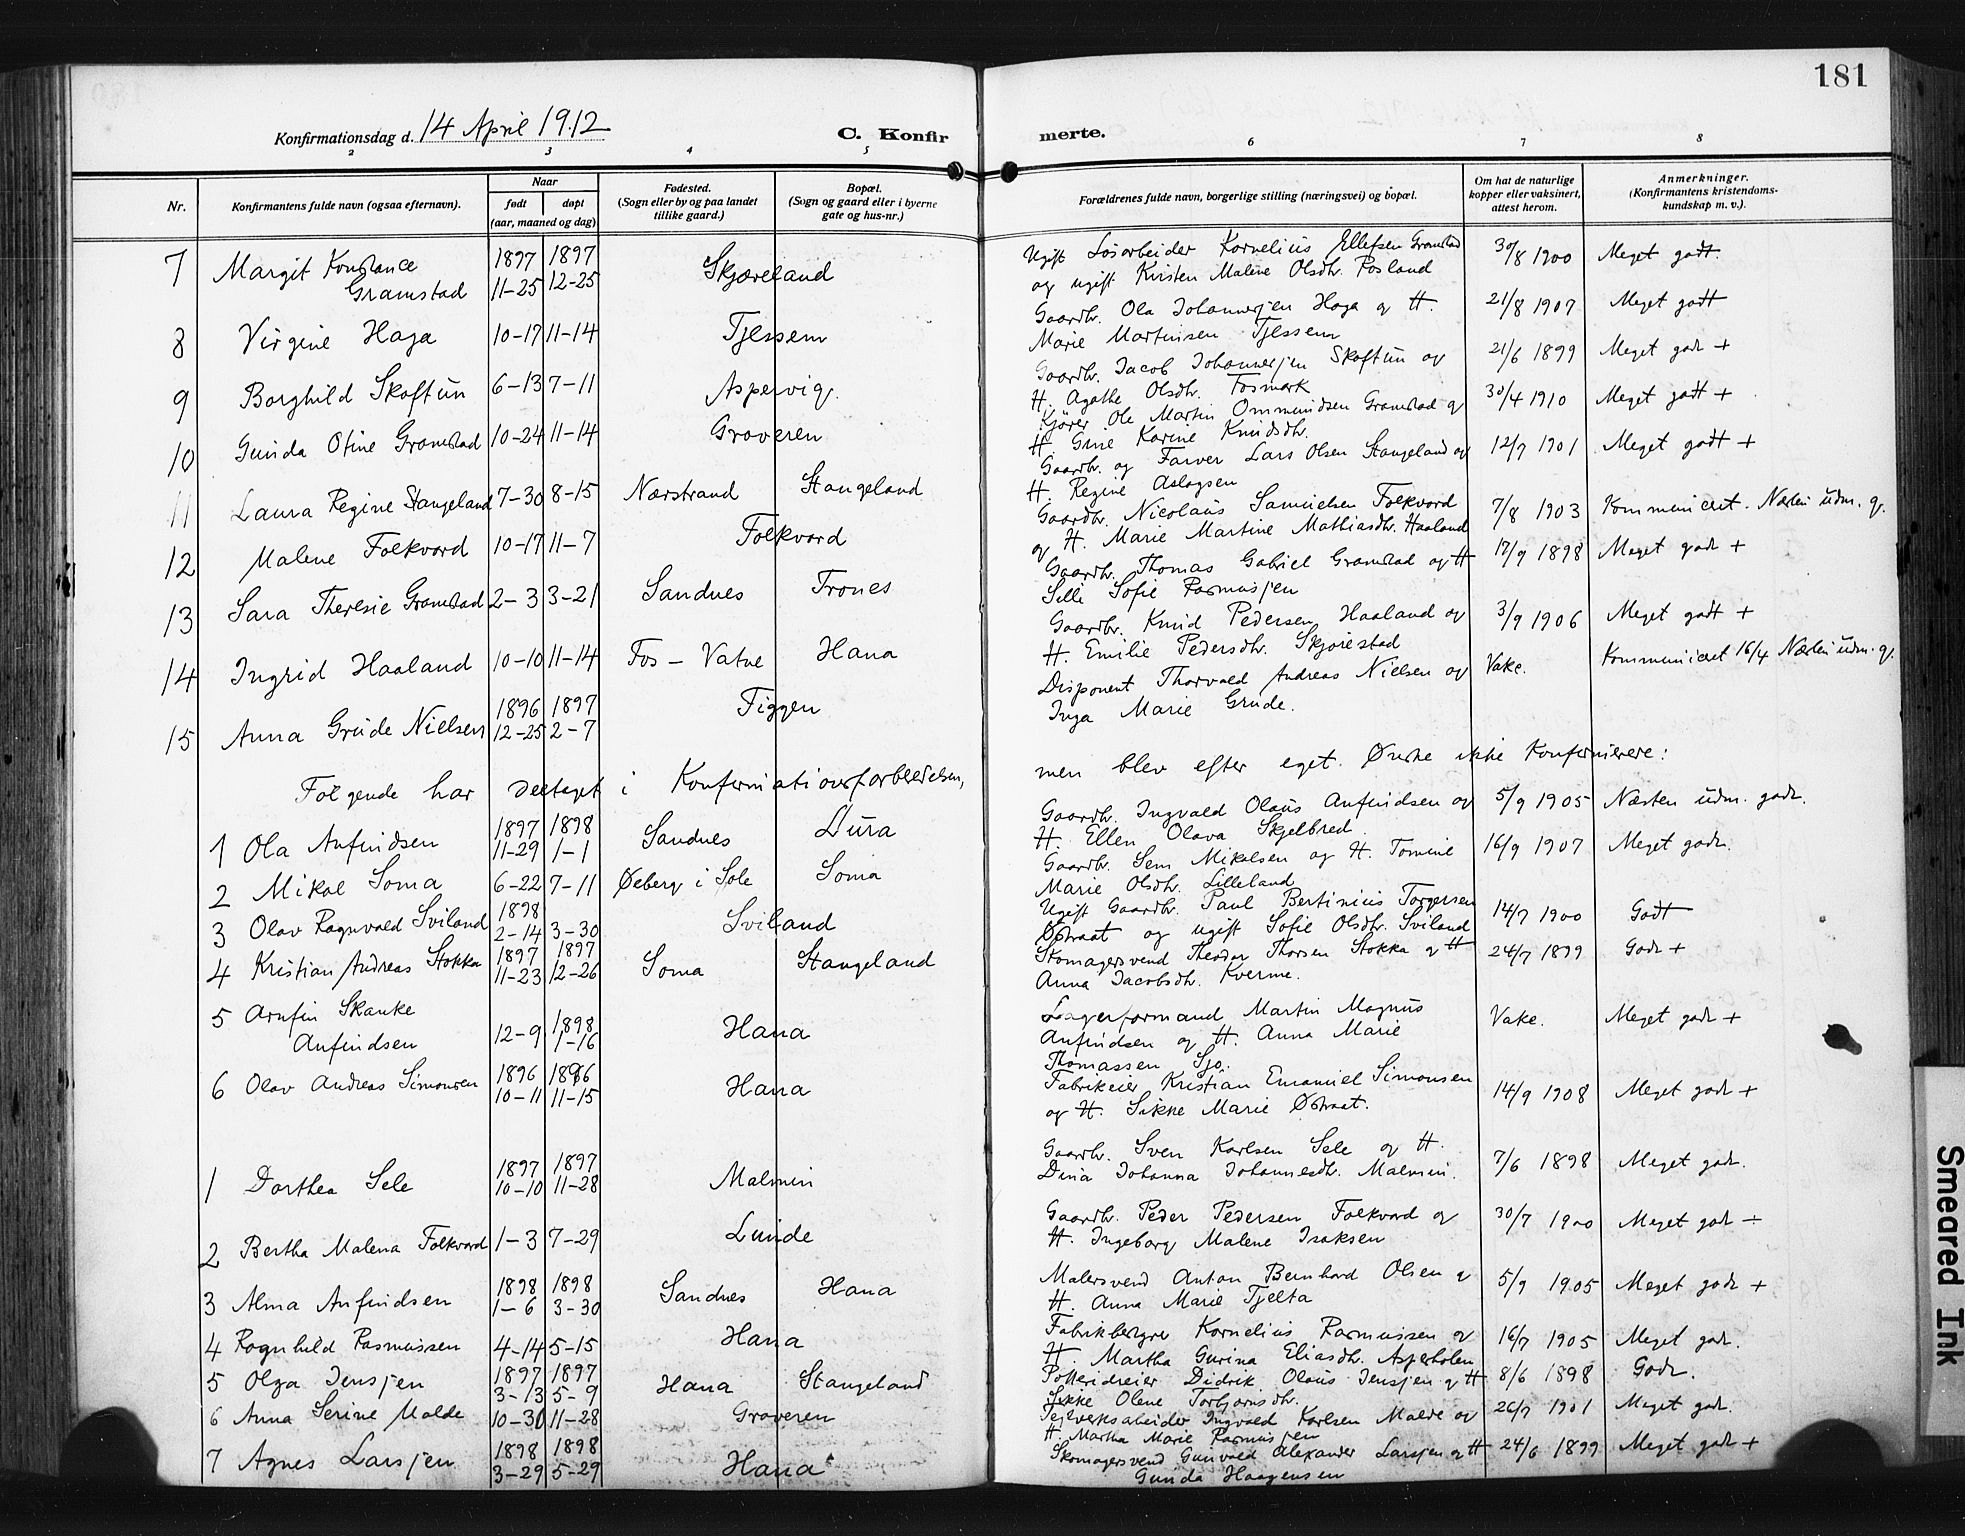 181
Konfirmationsdag d. 14 April 1912
C. Konfirmerte.
2 3 4 5 6 7 8
Nr.
Konfirmantens fulde navn (ogsaa efternavn).
Naar
født
døpt
(aar, maaned og dag)
Fødested.
(Sogn eller by og paa landet
tillike gaard.)
Bopæl.
(Sogn og gaard eller i byerne
gate og hus-nr.)
Forældrenes fulde navn, borgerlige stilling (næringsvei) og bopæl.
Om hat de naturlige
kopper eller vaksinert,
attest herom.
Anmerkninger.
(Konfirmantens kristendoms-
kundskap m. v.).
7 Margit Konstance Gramstad 1897 11-25 1897 12-25 Skjæreland
Ugift Løsarbeider Kornelius Ellefsen Gramstad
og ugift Kirsten Malene Olsdtr. Rosland
30/8 1900 Meget godt.
8 Virgine Haga 10-17 11-14 Tjessem
Gaardbr. Ola Johannesjen Haga og H.
Marie Martinsen Tjessem
21/8 1907 Meget godt
9 Borghild Skoftun 6-13 7-11 Aspervig.
Gaardbr. Jacob Johannesjen Skoftun og
H. Agathe Olsdtr. Fosmark
21/6 1899 Meget godt +
10 Gunda Otine Gramstad 10-24 11-14 Graveren
Kjører Ole Martin Ommundsen Gramstad og
H. Gine Karine Knudsdtr.
30/4 1910 Meget godt +
11 Laura Regine Stangeland 7-30 8-15 Nærstrand Stangeland
Gaardbr. og Farver Lars Olsen Stangeland og
H. Regine Aslagsen
12/7 1901 Meget godt +
12 Malene Folkvord 10-17 11-7 Folkvord
Gaardbr. Nicolaus Samuelsen Folkvord
og H. Marie Martine Mathiasdtr. Haaland
7/8 1903 Kommuniceret. Næsten udm. g.
13 Sara Theresie Gramstad 2-3 3-21 Sandnes Trones
Gaardbr. Thomas Gabriel Gramstad og H
Silli Sofie Rasmusjen
17/9 1898 Meget godt +
14 Ingrid Haaland 10-10 11-14 Fos - Vatne Hana
Gaardbr. Knud Pedersen Haaland og
H. Emilie Pedersdtr. Skjørestad
3/9 1906 Meget godt +
15 Anna Grude Nielsen 1896 12-25 1897 2-7 Figgen
Disponent Thorvald Andreas Nielsen og
Inga Marie Grude.
Vake. Kommuniceret 16/4 Næsten udm. g.
Følgende har deltaget i Konfirmationsforberedelsen, men blev efter eget Ønske ikke Konfirmerere:
1 Ola Anfindsen 1897 11-29 1898 1-1 Sandnes Lura
Gaardbr. Ingvald Olaus Anfindsen og
H. Ellen Olava Skjelbred
5/9 1905 Næsten udm. godt.
2 Mikal Soma 6-22 7-11 Øeberg i Sole Soma
Gaardbr. Sem Mikalsen og H. Tomine
Marie Olsdtr. Lilleland
16/9 1907 Meget godt.
3 Olav Ragnvald Sviland 1898 2-14 3-30 Sviland
Ugift Gaardbr. Paul Bertinius Torgersen
Østraat og ugift Sofie Olsdtr. Sviland
14/7 1900 Godt
4 Kristian Andreas Stokka 1897 11-23 1897 12-26 Soma Stangeland
Skomagersvend Theodor Thorsen Stokka og H
Anna Jacobsdtr. Kverme.
24/7 1899 Godt +
5 Arnfin Skanke Anfindsen 12-9 1898 1-16 Hana
Lagerformand Martin Magnus
Anfindsen og H. Anna Marie
Thomassen Sjo.
Vake. Meget godt +
6 Olav Andreas Simonsen 1896 10-11 1896 11-15 Hana
Fabrikeier Kristian Emanuel Simonsen
og H. Sikke Marie Østraat.
14/9 1908 Meget godt +
1 Dorthea Sele 1897 10-10 1897 11-28 Malmin
Gaardbr. Sven Karlsen Sele og H.
Dina Johanna Johannesdtr. Malmin.
7/6 1898 Meget godt.
2 Bertha Malena Folkvord 1-3 7-29 Lunde
Gaardbr. Peder Pedersen Folkvord og
H. Ingeborg Malene Isaksen
30/7 1900 Meget godt +
3 Alma Anfindsen 1898 1-6 1898 3-30 Sandnes Hana
Malersvend Anton Bernhard Olsen og
H. Anna Marie Tjelta
5/9 1905 Meget godt +
4 Ragnhild Rasmussen 4-14 5-15 Hana
Fabrikbestyrer Kornelius Rasmussen og
H. Martha Gurina Eliasdtr. Asperholen
16/7 1905 Meget godt.
5 Olga Jensjen 1897 3-13 1897 5-9 Hana Stangeland
Potteridreier Didrik Olaus Jensjen og H
Sikke Olene Torbjørnsdtr.
8/6 1898 Godt.
6 Anna Serine Malde 10-30 11-28 Graveren
Teglverksarbeider Ingvald Karlsen Malde og
H. Martha Marie Rasmusjen
26/7 1901 Meget godt.
7 Agnes Larsjen 1898 3-29 1898 5-29 Hana
Skomagersvend Gunvald Alexander Larsjen og H
Gunda Haagensen
24/6 1899 Meget godt +
Smeared Ink